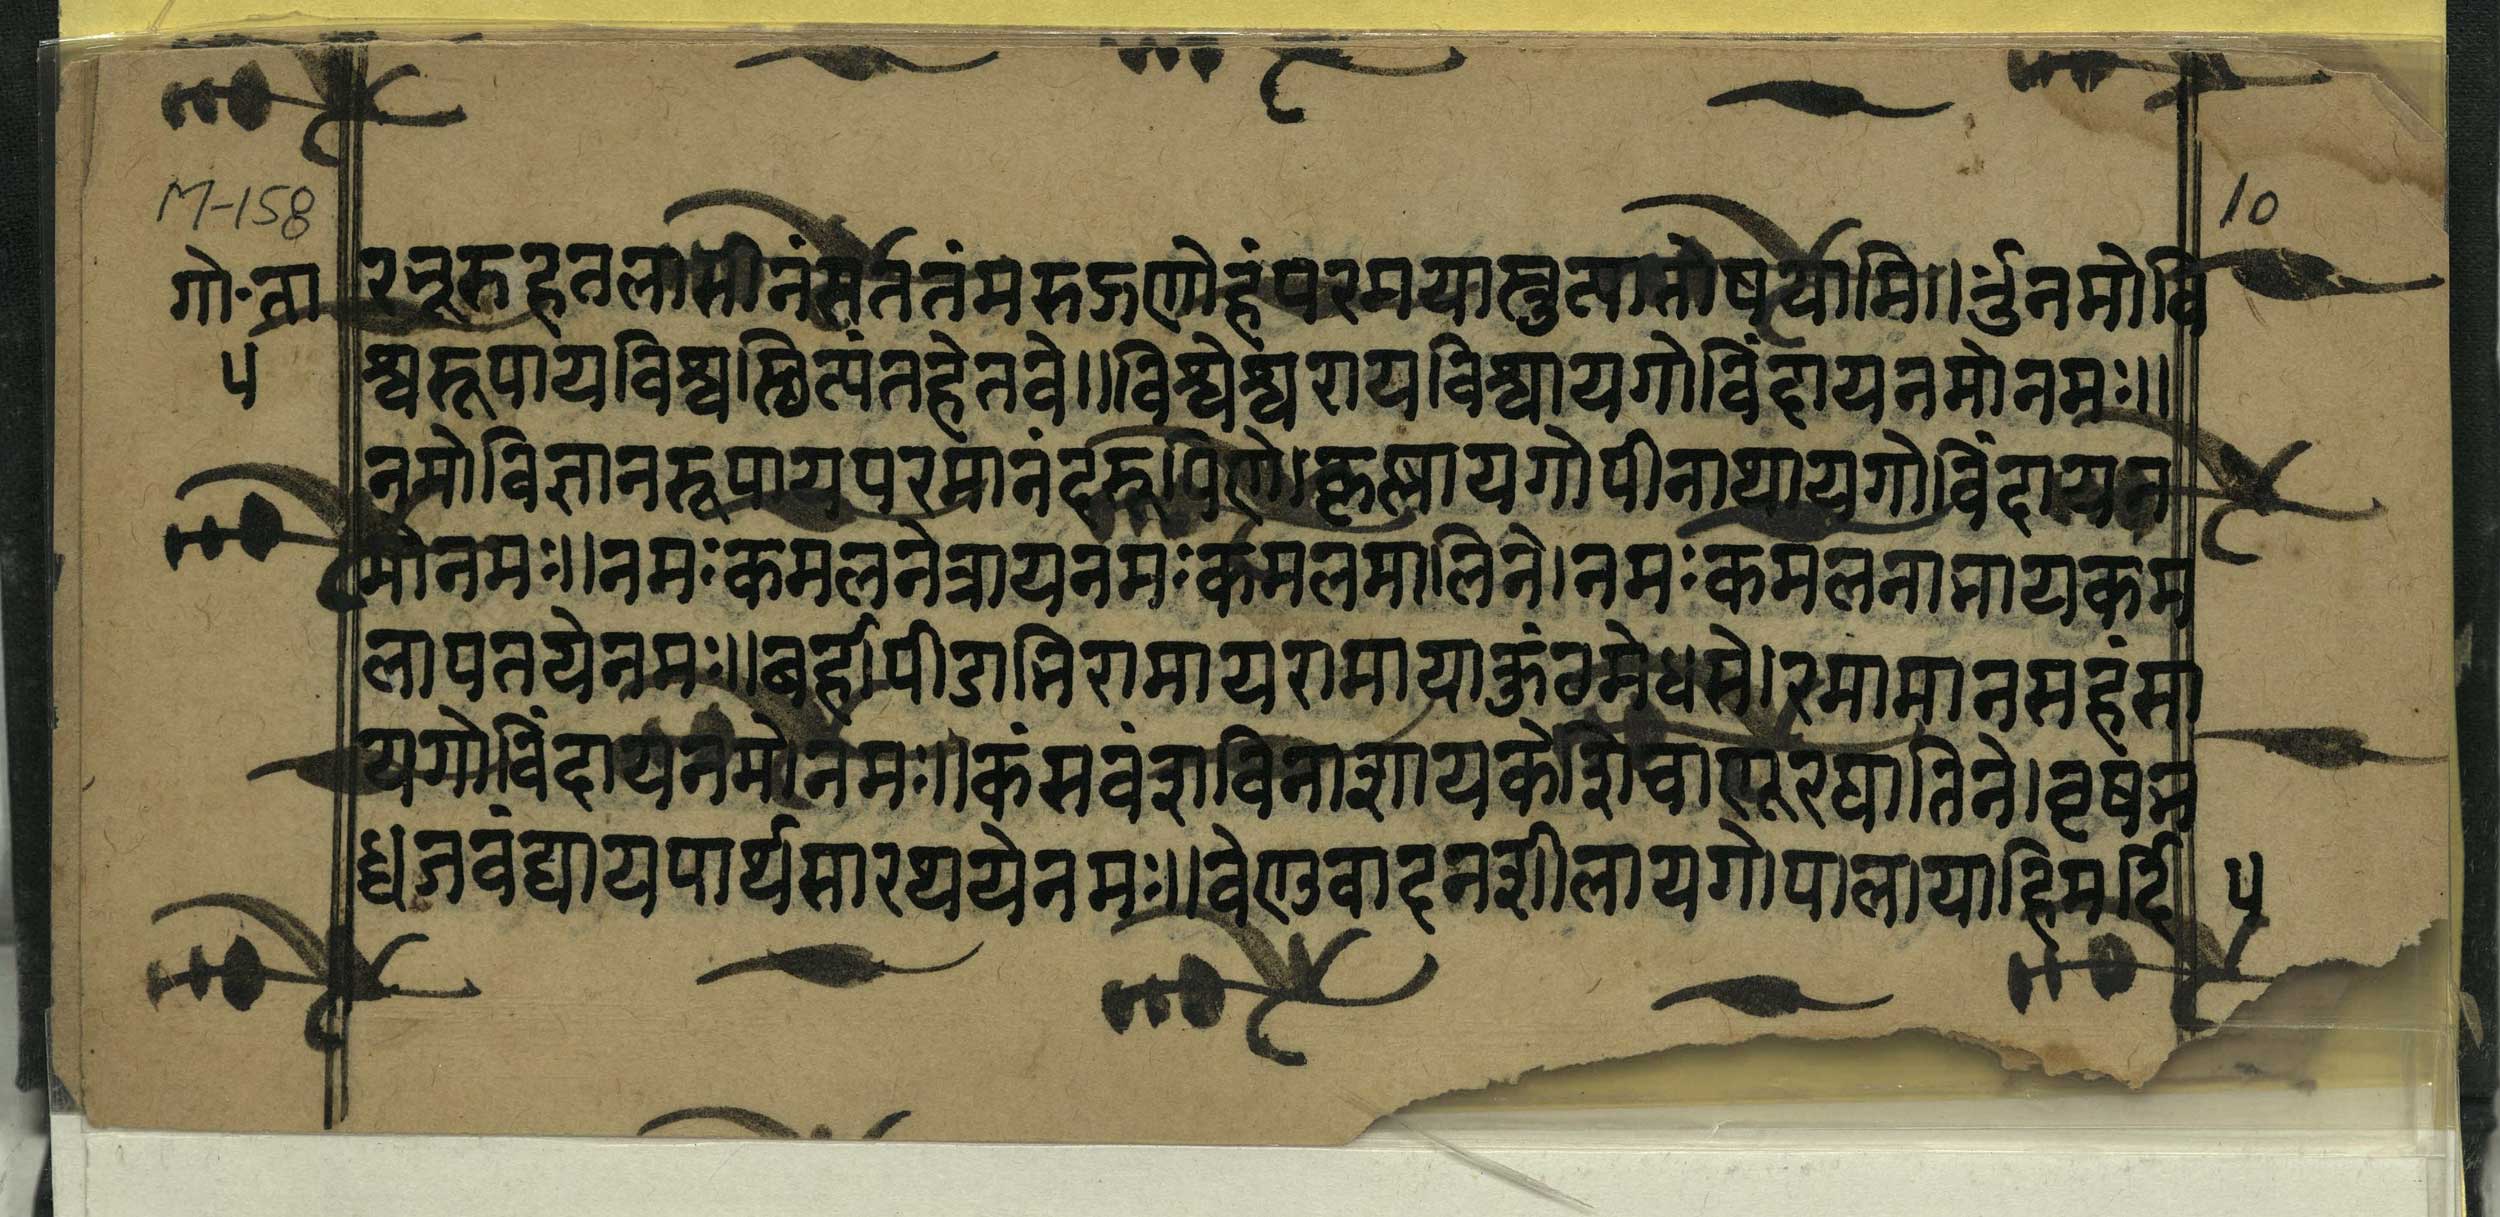 M-158
10
गो·ता
५
रभूरुहतलासीनंसततंमरुङ्गणोहंपरमयास्तुत्पातोषयामि॥ र्नुनमोवि
श्वरूपायविश्वस्छित्यंतहेतवे॥विश्वेश्वरायविश्वायगोविंदायनमोनमः॥
नमोविज्ञानरूपायपरमानंदरूपिणे।कृस्नायगोपीनाथायगोविंदायन
मोनमः॥नमःकमलनेत्रायनमःकमलमालिने।नमःकमलनाभायकम
लापतयेनमः॥बर्हापीडाभिरामायरामायाकुंठमेधसे।रमामानसहंसा
यगोविंदायनमोनमः॥कंसवंशविनाशायकेशिचाणूरघातिने।वृषभ
ध्वजवंद्यायपार्थसारथयेनमः॥वेणुवादनशीलायगोपालायाहिमर्दि
५